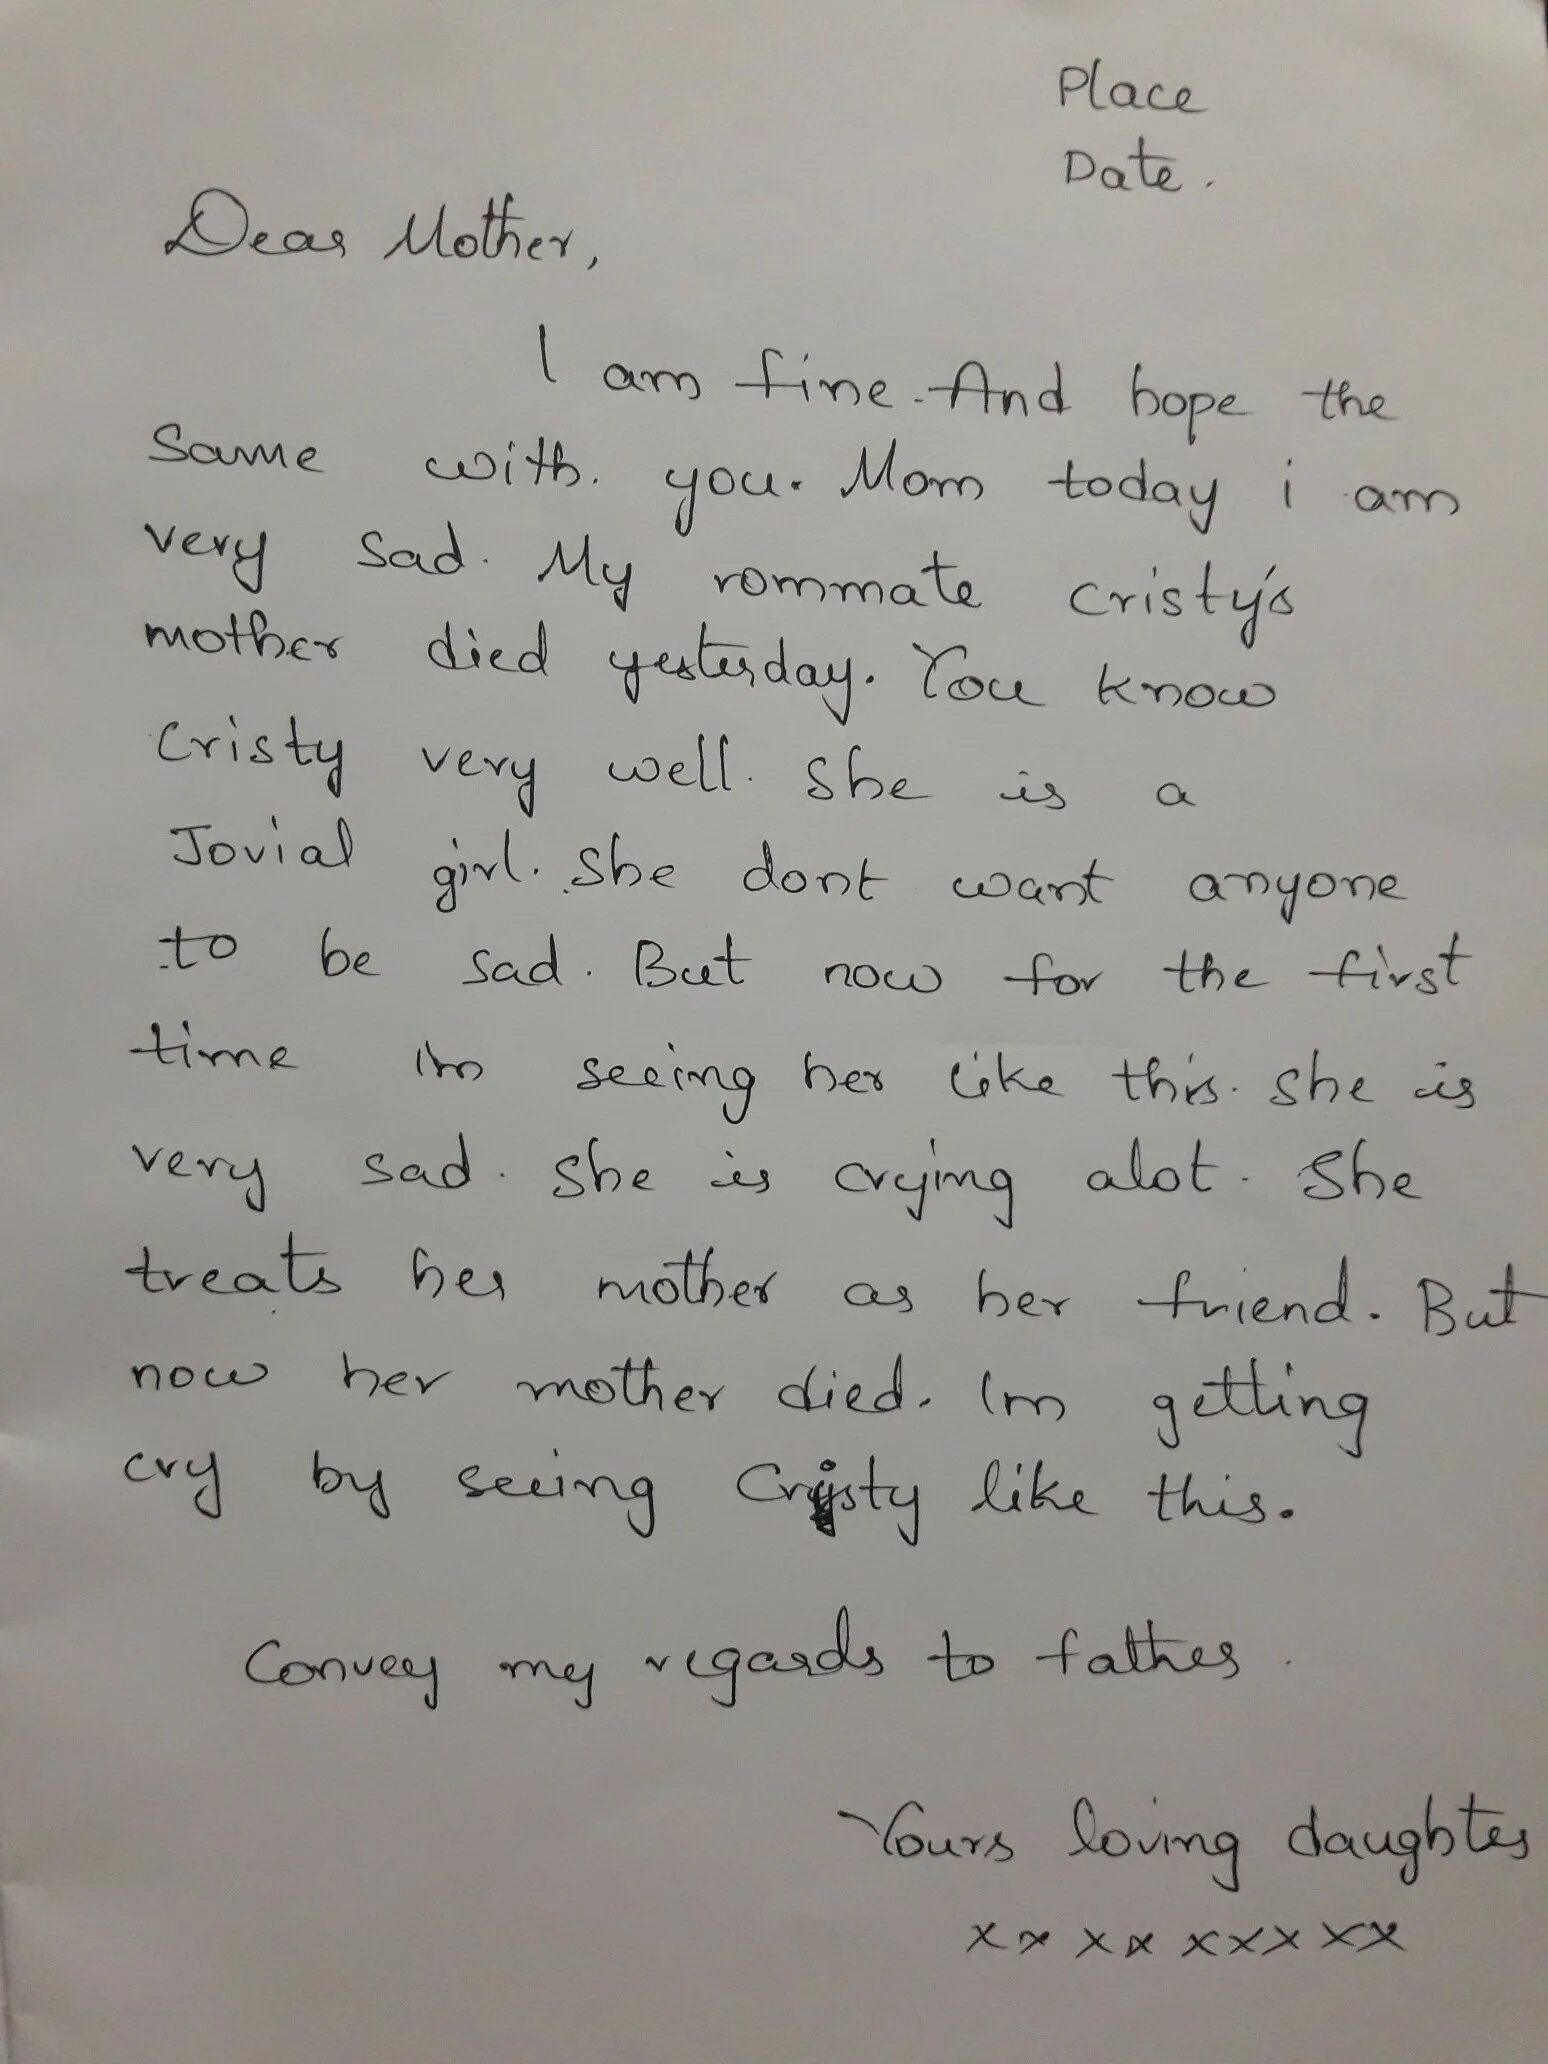 Place
Date.
Dear Mother,
I am fine. And hope the
same with. you. Mom today i am
very sad. My rommate cristy's
mother died yesterday. You know
cristy very well. She is a
Jovial girl. She dont want anyone
to be sad. But now for the first
time I'm seeing her like this. She is
very sad. She is crying alot. She
treats her mother as her friend. But
now her mother died. Im getting
cry by seeing Cristy like this.
Convey my regards to father.
Yours loving daughter
x x x x x x x x x